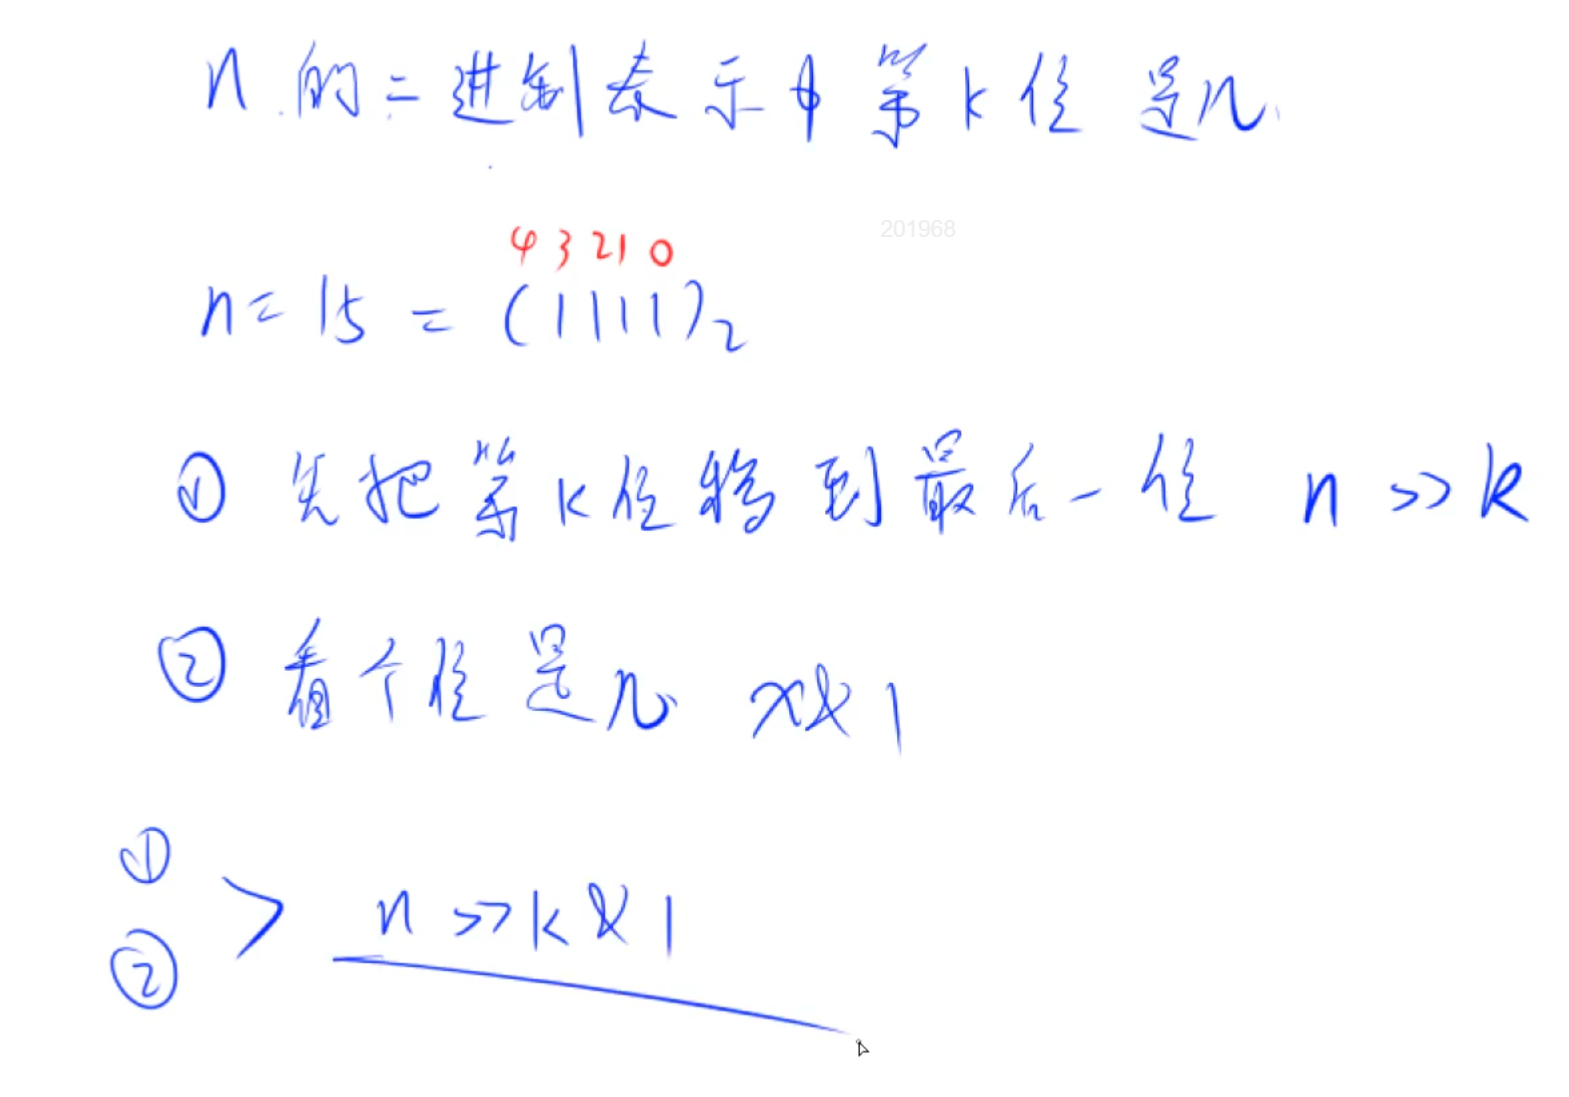 n的二进制表示中第k位是几
201968
4 3 2 1 0
n = 15 = (1111)₂
① 先把第k位移到最后一位 n >> k
② 看个位是几 x & 1
①
② > n >> k & 1